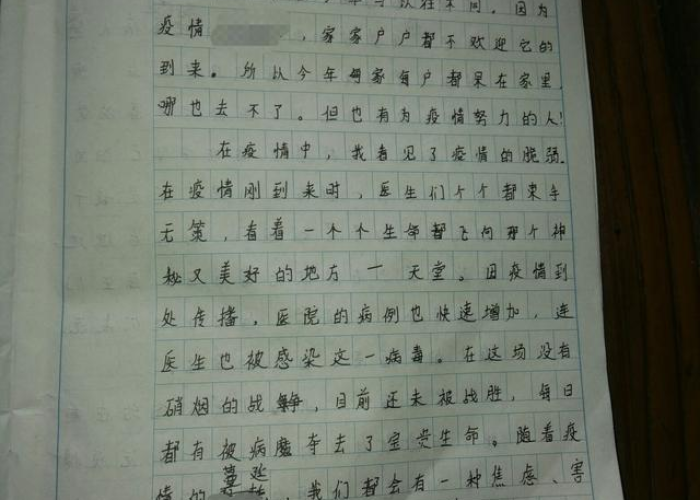 往年不同。因为
疫情，家家户户都不欢迎它的
到来。所以今年每家每户都呆在家里，
哪也去不了。但也有为疫情努力的人！
在疫情中，我看见了疫情的脆弱。
在疫情刚到来时，医生们个个都束手
无策，看着一个个生命都飞向那个神
秘又美好的地方一天堂。因疫情到
处传播，医院的病例也快速增加，连
医生也被感染这一病毒。在这场没有
硝烟的战争，目前还未被战胜，每日
都有被病魔夺去了宝贵生命。随着疫
情的蔓延，我们都会有一种焦虑、害